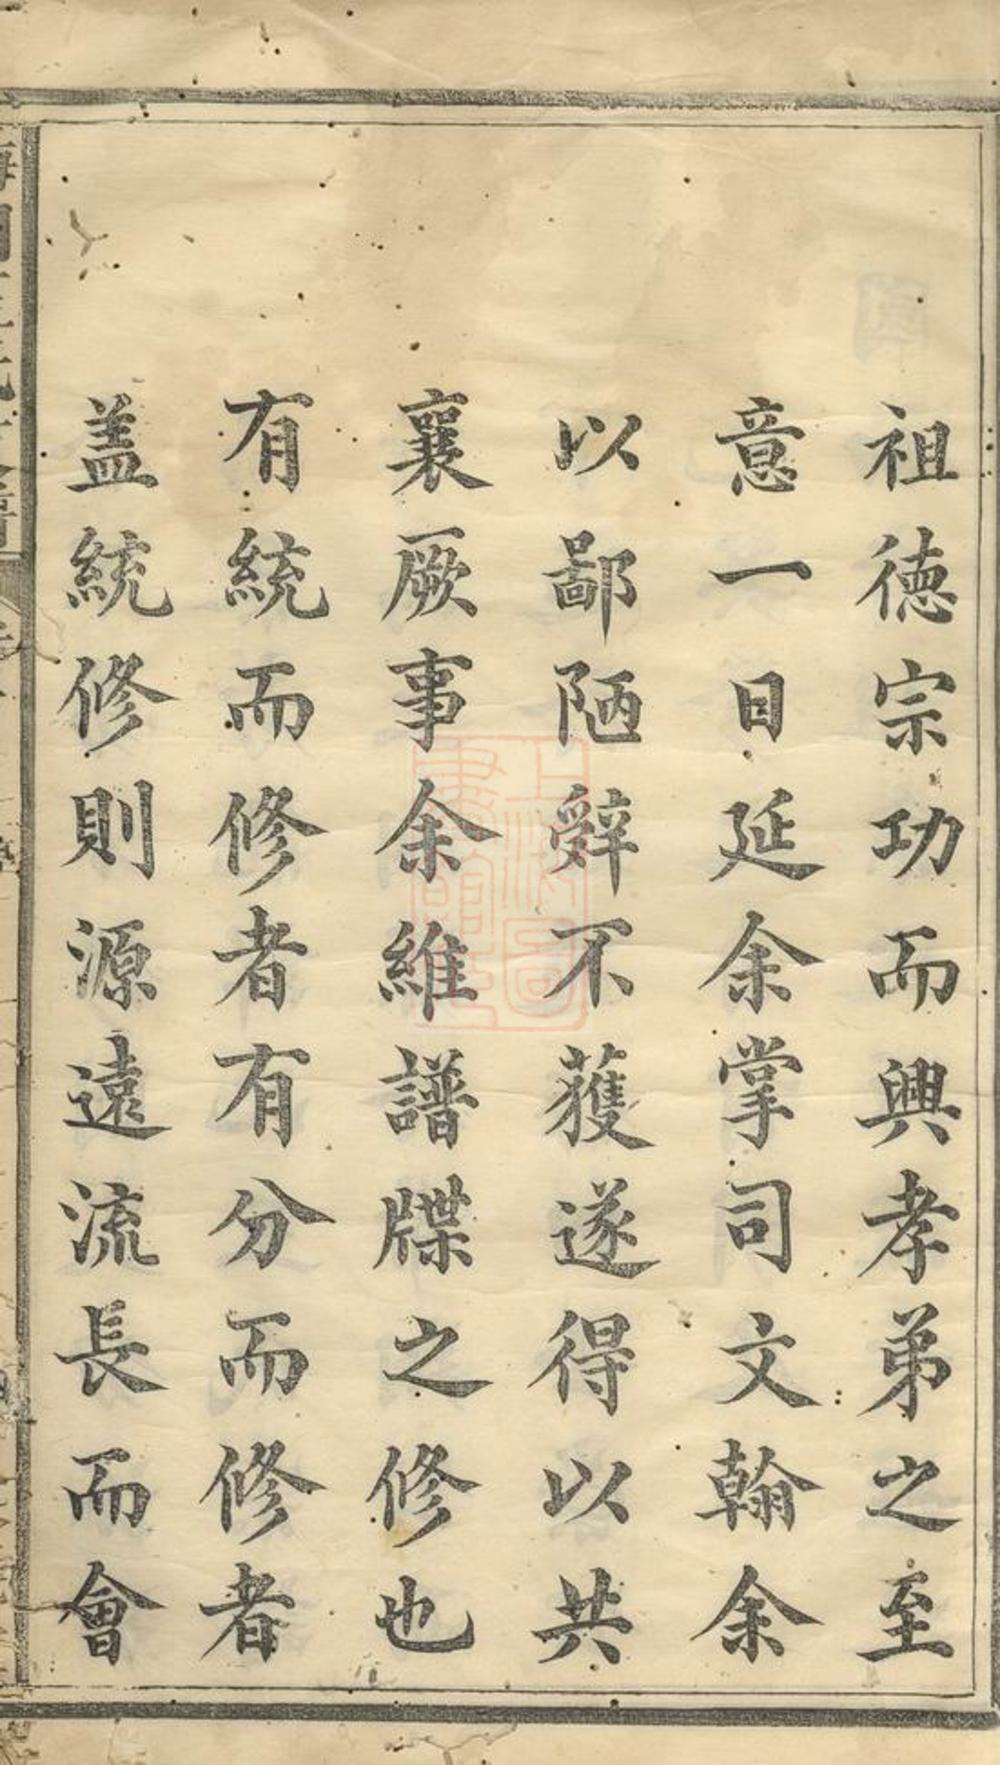 祖徳宗功而興孝弟之至
意一日延余掌司文翰余
以鄙陋辤不獲遂得以共
襄厥事余維譜牒之修也
有統而修者有分而修者
盖統修則源遠流長而會